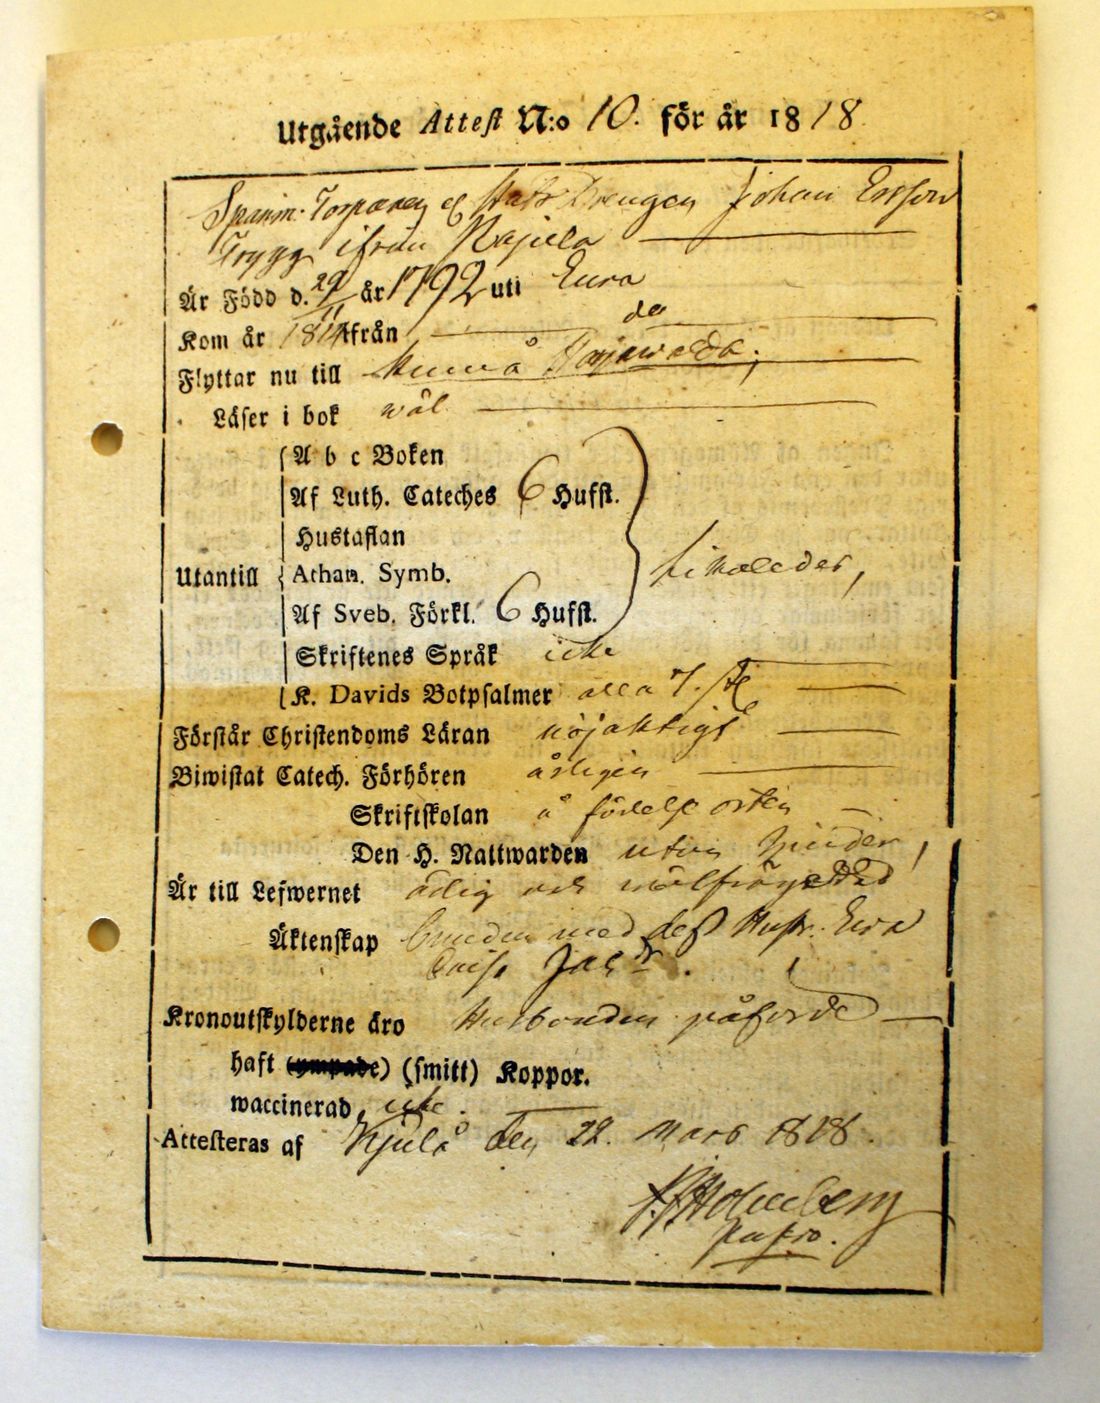 Utgående Attest N:o 10. för år 1818
Johan Ersson
Trygg ifrån
Är Född d. 29/11 år 1792 uti Eura
Kom år 1814 ifrån do
Flyttar nu till
Läser i bok wäl
A b c Boken
Af Luth. Cateches 6 Hufst.
Hustaflan
Utantill Athan. Symb. likaledes,
Af Sveb. Förkl. 6 Hufst.
Skriftenes Språk icke
K. Davids Botpsalmer alla 7. st
Förstår Christendoms Läran nöjaktigt
Biwistat Catech. Förhören årligen
Skriftskolan å födelse orten
Den H. Nattwarden utan hinder,
Är till Lefwernet ärlig och wälfrägdad
Äktenskap bunden med dess Hustr. Eva
Kronoutskylderne äro Husbonden påförde
haft (ympade) (smitt) Koppor.
waccinerad icke.
Attesteras af Kjulå den 22. Mars 1818.